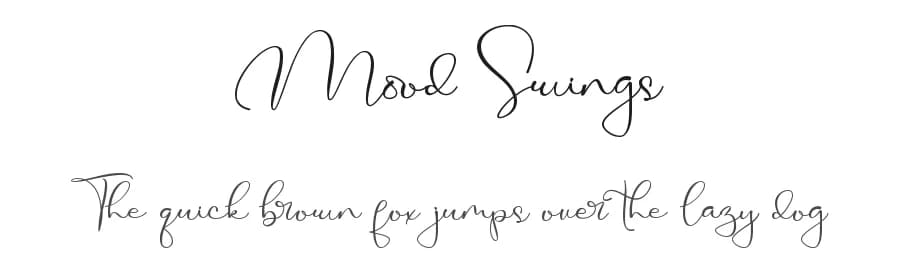 Mood Swings
The quick brown fox jumps over the lazy dog